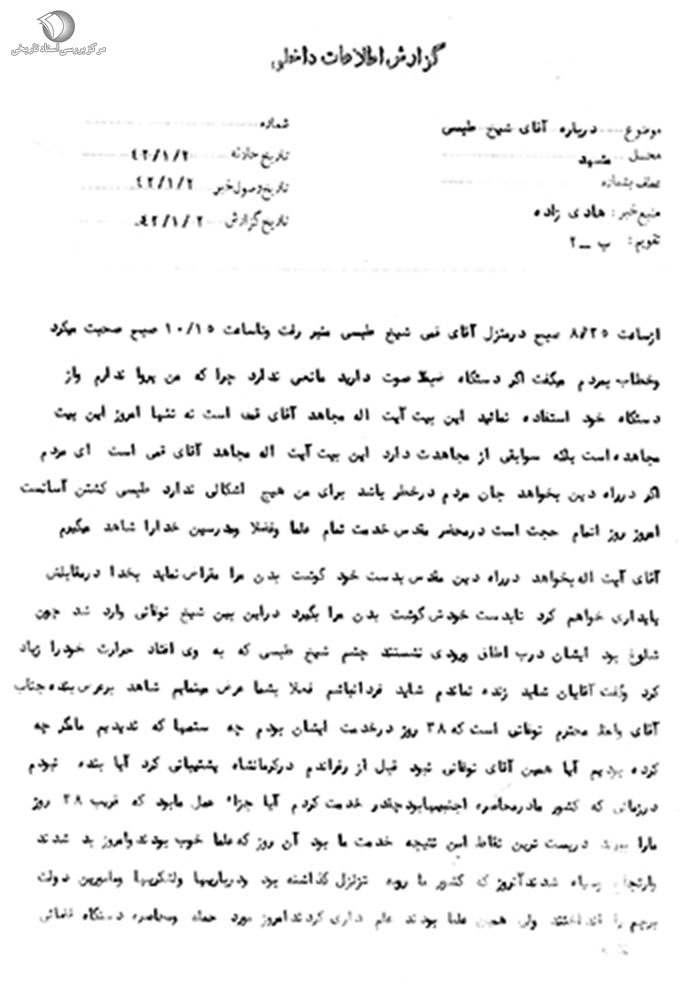 مرکز بررسی اسناد تاریخی
گزارش اطلاعات داخلی
موضوع درباره آقای شیخ طبسی
محل مشهد
عطف بشماره
منبع خبر: هادی زاده
تقویم: ب – ۲
شماره
تاریخ حادثه ۴۲/۱/۲۰
تاریخ وصول خبر ۴۲/۱/۲
تاریخ گزارش ۴۲/۱/۲۰
ازساعت ۸/۲۵ صبح درمنزل آقای قمی شیخ طبسی منبر رفت وتاساعت ۱۰/۱۵ صبح صحبت میکرد
وخطاب بمردم میگفت اگر دستگاه ضبط صوت دارید مانعی ندارد چرا که من پروا ندارم واز
دستگاه خود استفاده نمائید این بیت آیت اله مجاهد آقای قمی است نه تنها امروز این بیت
مجاهده است بلکه سوابقی از مجاهدت دارد این بیت آیت اله مجاهد آقای قمی است ای مردم
اگر درراه دین بخواهد جان مردم درخطر باشد برای من هیچ اشکالی ندارد طبسی کشتن آسانست
امروز روز اتمام حجت است درمحضر مقدس خدمت تمام علما وفضلا ومدرسین خدارا شاهد میگیرم
آقای آیت اله بخواهد درراه دین مقدس بدست خود گوشت بدن مرا مقراض نماید بخدا درمقابلش
پایداری خواهم کرد تابدست خودش گوشت بدن مرا بگیرد دراین بین شیخ نوقانی وارد شد چون
شلوغ بود ایشان درب اطاق ورودی نشستند چشم شیخ طبسی که به وی افتاد حرارت خودرا زیاد
کرد وگفت آقایان شاید زنده نماندم شاید فردانباشم فعلا بشما عرض مینمایم شاهد برعرض بنده جناب
آقای واعظ محترم نوقانی است که ۳۸ روز درخدمت ایشان بودم چه ستمها که ندیدیم ماگر چه
کرده بودیم آیا همین آقای نوقانی نبود قبل از رفراندم درکرمانشاه پشتیبانی کرد آیا بنده نبودم
درزمانی که کشور مادرمحاصره اجنبیهابود چقدر خدمت کردم آیا جزاء عمل مابود که قریب ۳۸ روز
مارا ببرند درپست ترین نقاط این نتیجه خدمت ما بود آن روز که علما خوب بودند وامروز بد شدند
وارتجاع سیاه شدند آنروز که کشور ما روبه تزلزل گذاشته بود ودرباریها ولشکریها ومامورین دولت
پرچم را انداختند ولی همین علما بودند علم داری کردند امروز مورد حمله ومحاصره دستگاه قضائی